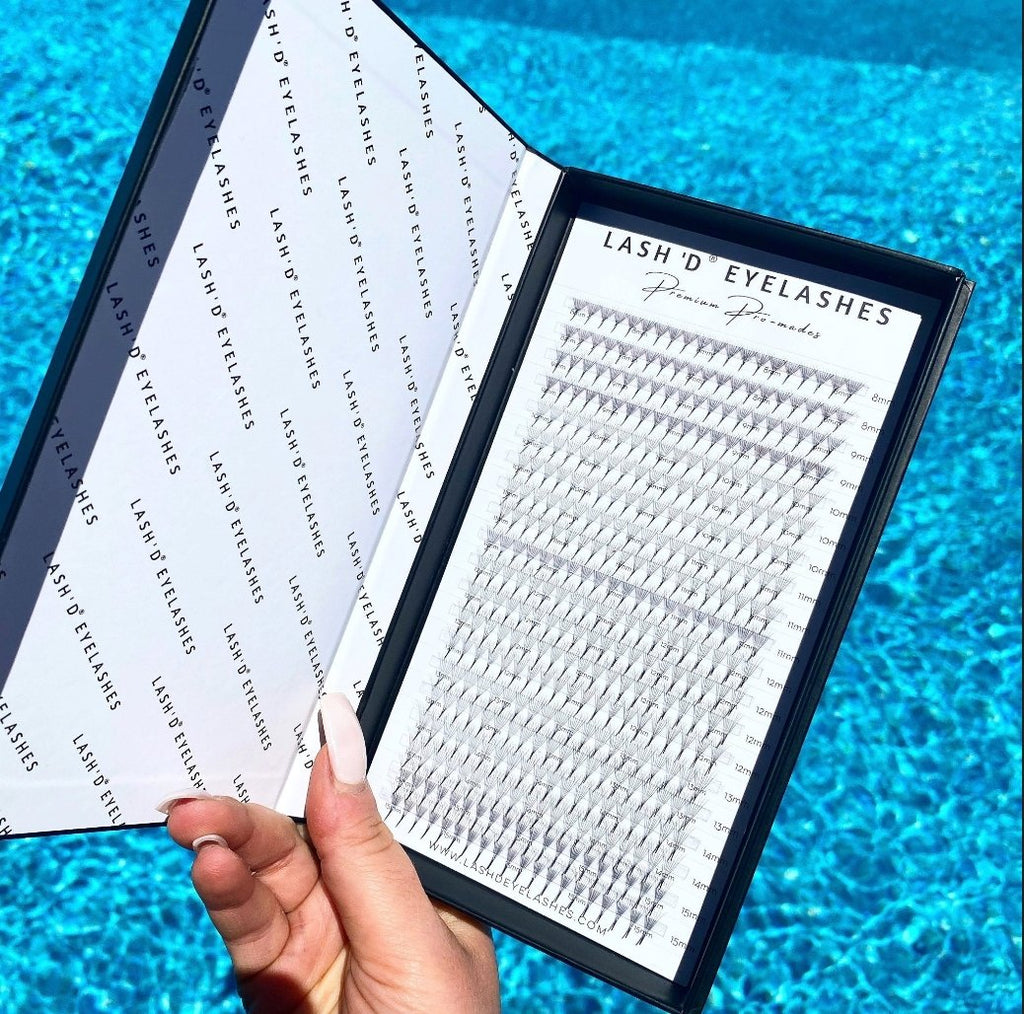 LASH'D® EYELASHES
Premium Pro-mades
8mm
8mm
9mm
9mm
10mm
10mm
10mm
11mm
11mm
12mm
12mm
12mm
12mm
13mm
13mm
14mm
14mm
15mm
15mm
WWW.LASHDEYELASHES.COM
LASH'D® EYELASHES
LASH'D® EYELASHES
LASH'D® EYELASHES
LASH'D® EYELASHES
LASH'D® EYELASHES
LASH'D® EYELASHES
LASH'D® EYELASHES
LASH'D® EYELASHES
LASH'D® EYELASHES
LASH'D® EYELASHES
LASH'D® EYELASHES
LASH'D® EYELASHES